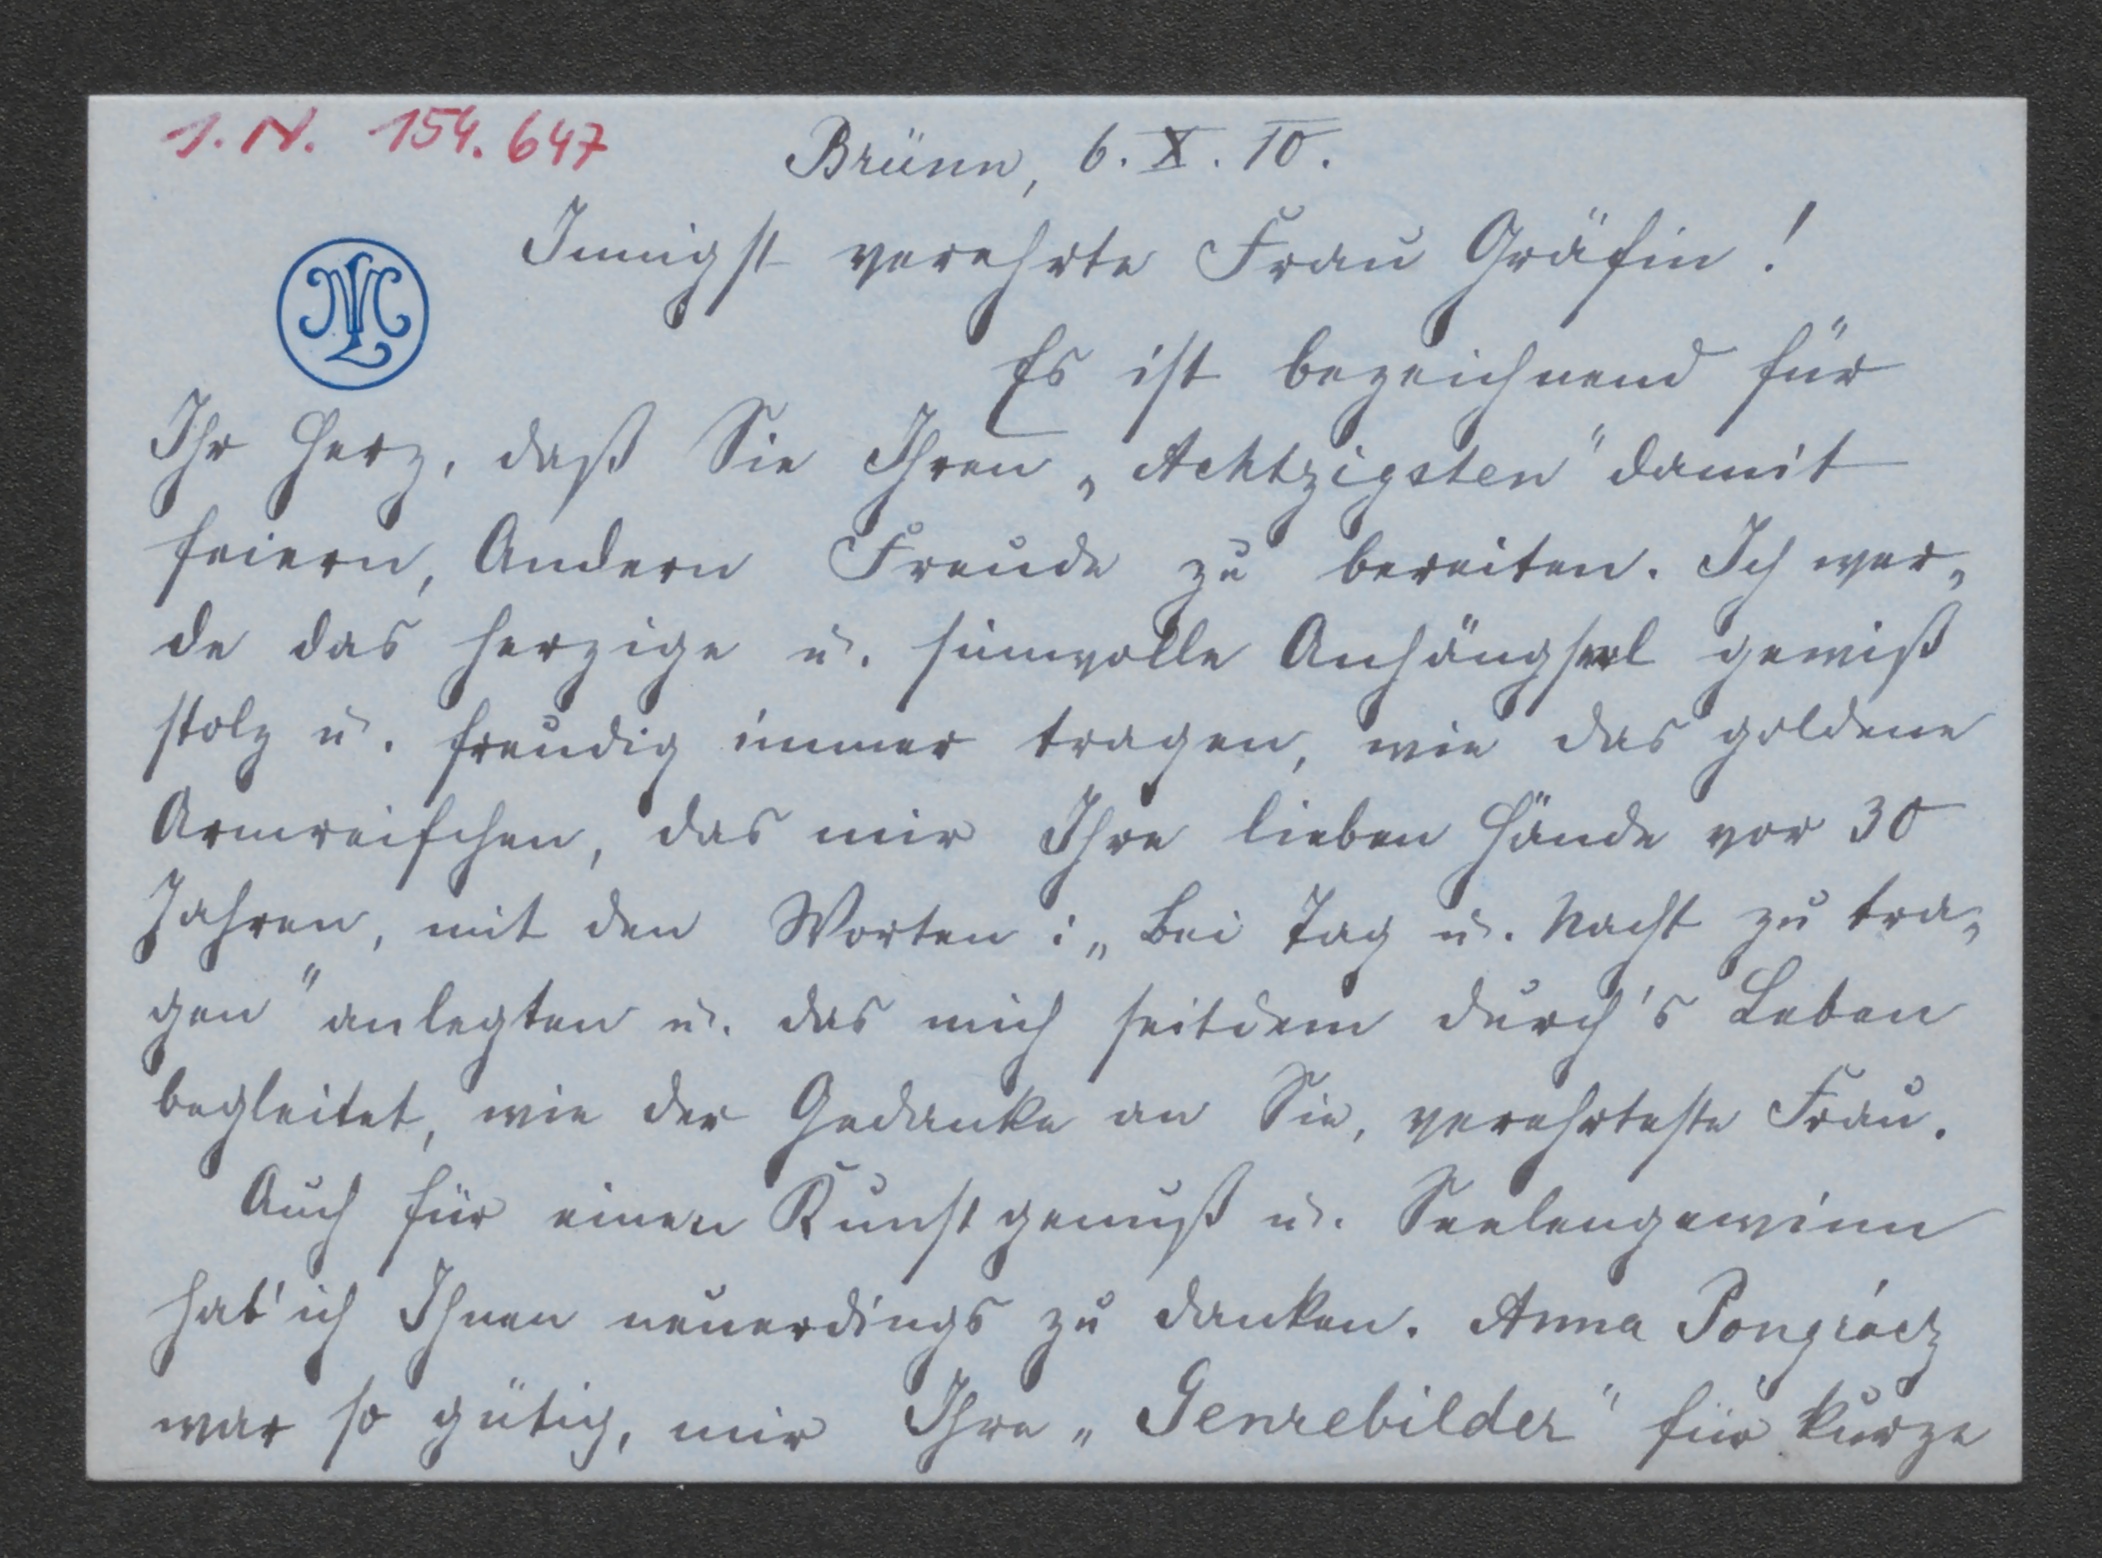 I.N. 154.647
Brünn, 6. X. 10.
Innigst verehrte Frau Gräfin!
Es ist bezeichnend für
Ihr Herz, daß Sie Ihren „Achtzigsten" damit
feiern, Andern Freude zu bereiten. Ich wer„
de das herzige u. sinnvolle Anhängserl gewiß
stolz u. freudig immer tragen, wie das goldene
Armreifchen, das mir Ihre lieben Hände vor 30
Jahren, mit den Worten: „Bei Tag u. Nacht zu tra„
gen" anlegten u. das mich seitdem durch's Leben
begleitet, wie der Gedanke an Sie, verehrteste Frau.
Auch für einen Kunstgenuß u. Seelengewinn
hab' ich Ihnen neuerdings zu danken. Anna Pongrácz
war so gütig, mir Ihre „Genrebilder" für kurze